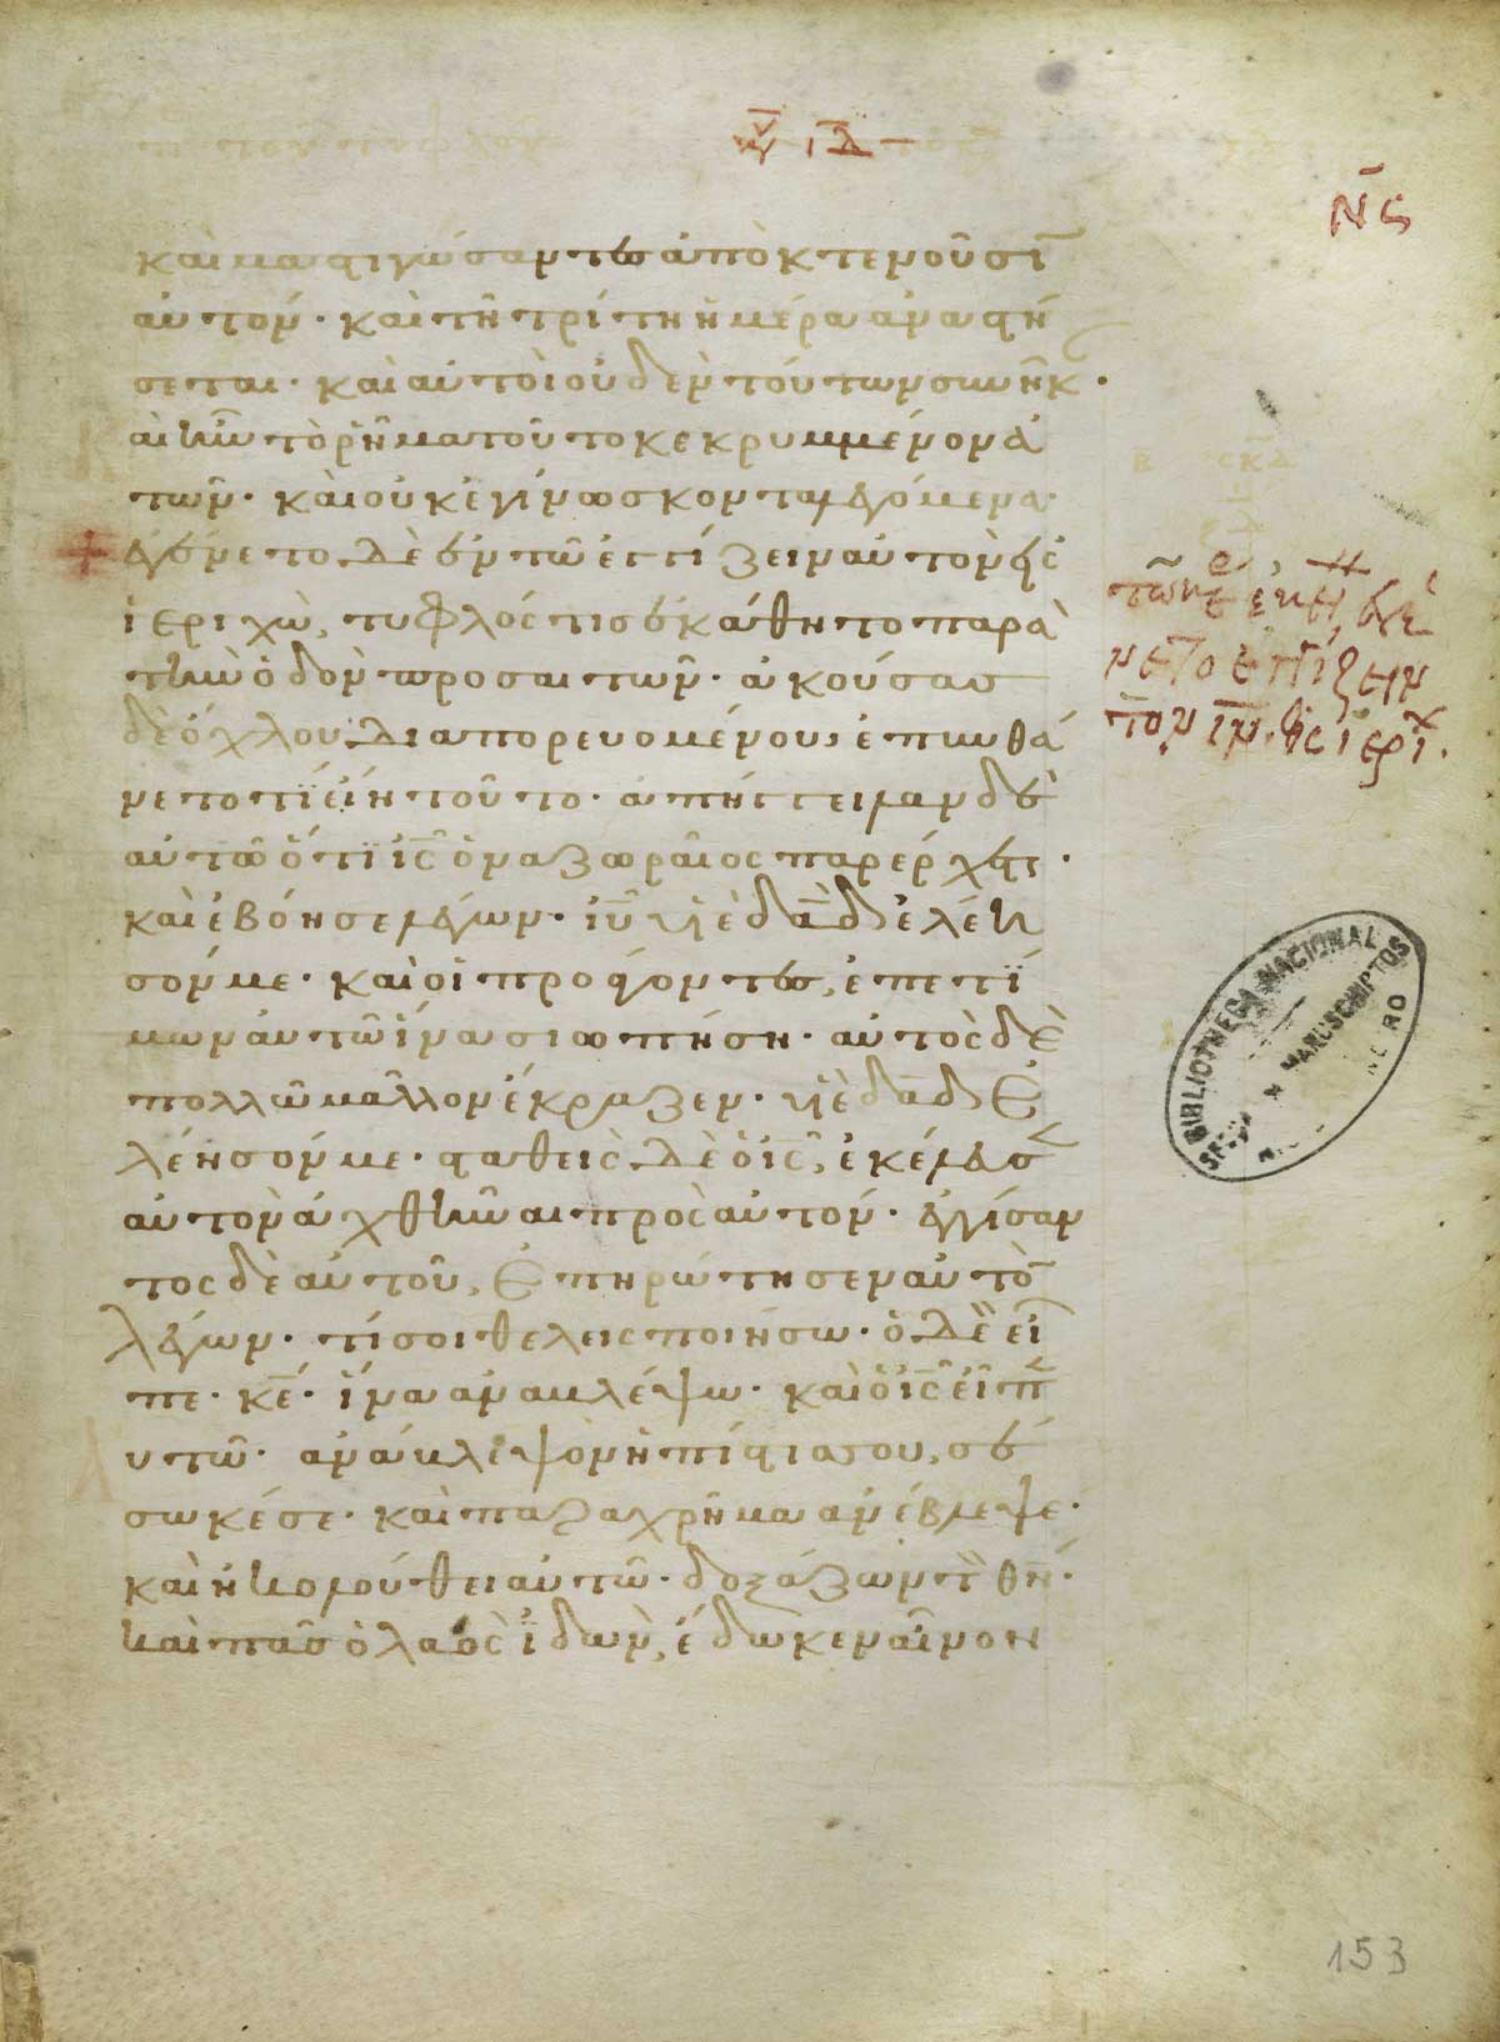 ῑδ
Ν̄ς
καὶ μαστιγώσαντες ἀποκτενοῦσῑ
αὐτόν· καὶ τῆ τρίτη ἡμέρα ἀναστή
σεται· καὶ αὐτοὶ οὐδὲν τούτων συνῆκ·
αὶ ἦν τὸ ρῆμα τοῦτο κεκρυμμένον ἀ
τῶν· καὶ οὐκ ἐγίνωσκον τα λεγόμενα·
+ ἐγένετο δὲ ἐν τῶ ἐγγίζειν αὐτὸν εἰς
ἱεριχὼ, τυφλός τις ἐκάθητο παρὰ
τὴν ὁδὸν προσαιτῶν· ἀκούσας
δὲ ὄχλου διαπορευομένου, ἐπυνθά
νετο τί εἴη τοῦτο· ἀπήγγειλαν δὲ
αὐτῶ ὅτι ῑς ὁ ναζωραῖος παρέρχεται·
καὶ ἐβόησε λέγων· ῑυ υἱὲ δᾱδ ἐλέη
σόν με· καὶ οἱ προάγοντες, ἐπετί
μων αὐτῶ ἵνα σιωπήση· αὐτὸς δὲ
πολλῶ μᾶλλον ἔκραζεν· υἱὲ δᾱδ ἐ
λέησόν με· σταθεὶς δὲ ὁ ῑς, ἐκέλευσ
αὐτὸν ἀχθῆναι πρὸς αὐτόν· ἐγγίσαν
τος δὲ αὐτοῦ, ἐπηρώτησεν αὐτὸ
λέγων· τί σοι θέλεις ποιήσω· ὁ δὲ εἶ
πε· κ̄ε· ἵνα ἀναβλέψω· καὶ ὁ ῑς εἶπ
υτῶ· ἀνάβλεψον ἡ πίστις σου, σέ
σωκέ σε· καὶ παραχρῆμα ἀνέβλεψε·
καὶ ἠκολούθει αὐτῶ· δοξάζων τὸν θ̄ν·
καὶ πᾶς ὁ λαὸς ἰδὼν, ἔδωκεν αἶνον
τῶ κ ἐκ ἐγέ
νετο ἐγγίζειν
τὸν ῑν εἰς ἱερῑχ.
BIBLIOTHECA NACIONAL
MANUSCRIPTOS
153